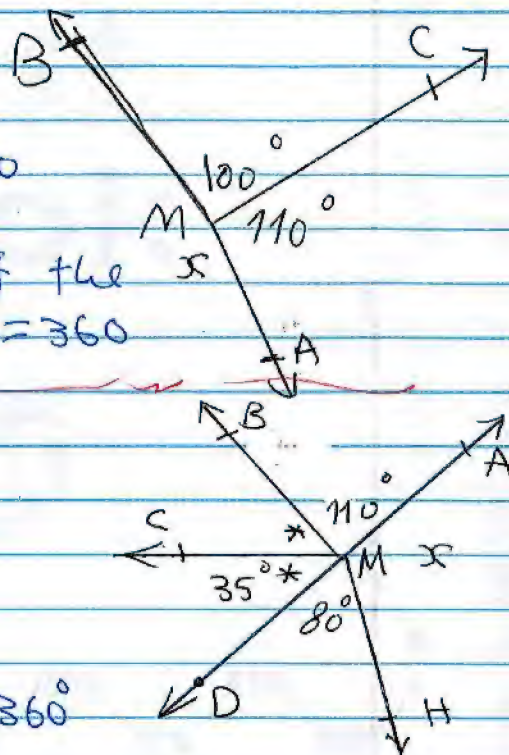 B
C
0
100°
M
110°
f the
x
= 360
A
B
A
110°
C
*
M
x
35°
*
80°
D
H
360°